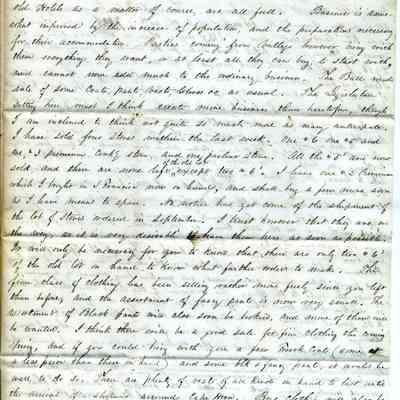 old Hotels as a matter of course, are all full. Business is some-
what improved by the increase of population, and the preparations necessary
for their accommodation. Parties coming from Valleys however bring with
them everything they want, or at least all they can buy to start with,
and cannot now add much to the ordinary business. The Bull made
sale of some Coats, pants, vests, Gloves &c as usual. The Legislature
sitting here must I think create more business than heretofore, though
I am inclined to think not quite so much more as many anticipate.
I have sold four stoves within the last week. One
me, & 1 premium Cook'g stove, and one parlor stove. All the "5" are now
sold and there are none left of the old lot except two "6". I have one 5 Premium
which I bought in S Francisco now on hand, and shall buy a few more soon
as I have means to spare. No notice has yet come of the shipment of
the lot of Stoves ordered in September. I trust however that they are on
the way, as it is very desirable to have them here as soon as possible.
It will only be necessary for you to know that there are only two "6"
of the old lot on hand to know what further orders to make. The
finer class of clothing has been selling rather more freely since you left
than before, and the assortment of fancy pants is now very small. The
assortment of Black pants will also soon be broken, and more of them will
be wanted. I think there will be a good sale for fine clothing the coming
Spring, and if you could bring with you a few Frock Coats (some at
a less price than those on hand) and some blk & fancy pants, it would be
well to do so. There are plenty of vests of all kinds on hand to last until
the arrival of a shipment around Cape Horn. Boys Clothes will also be